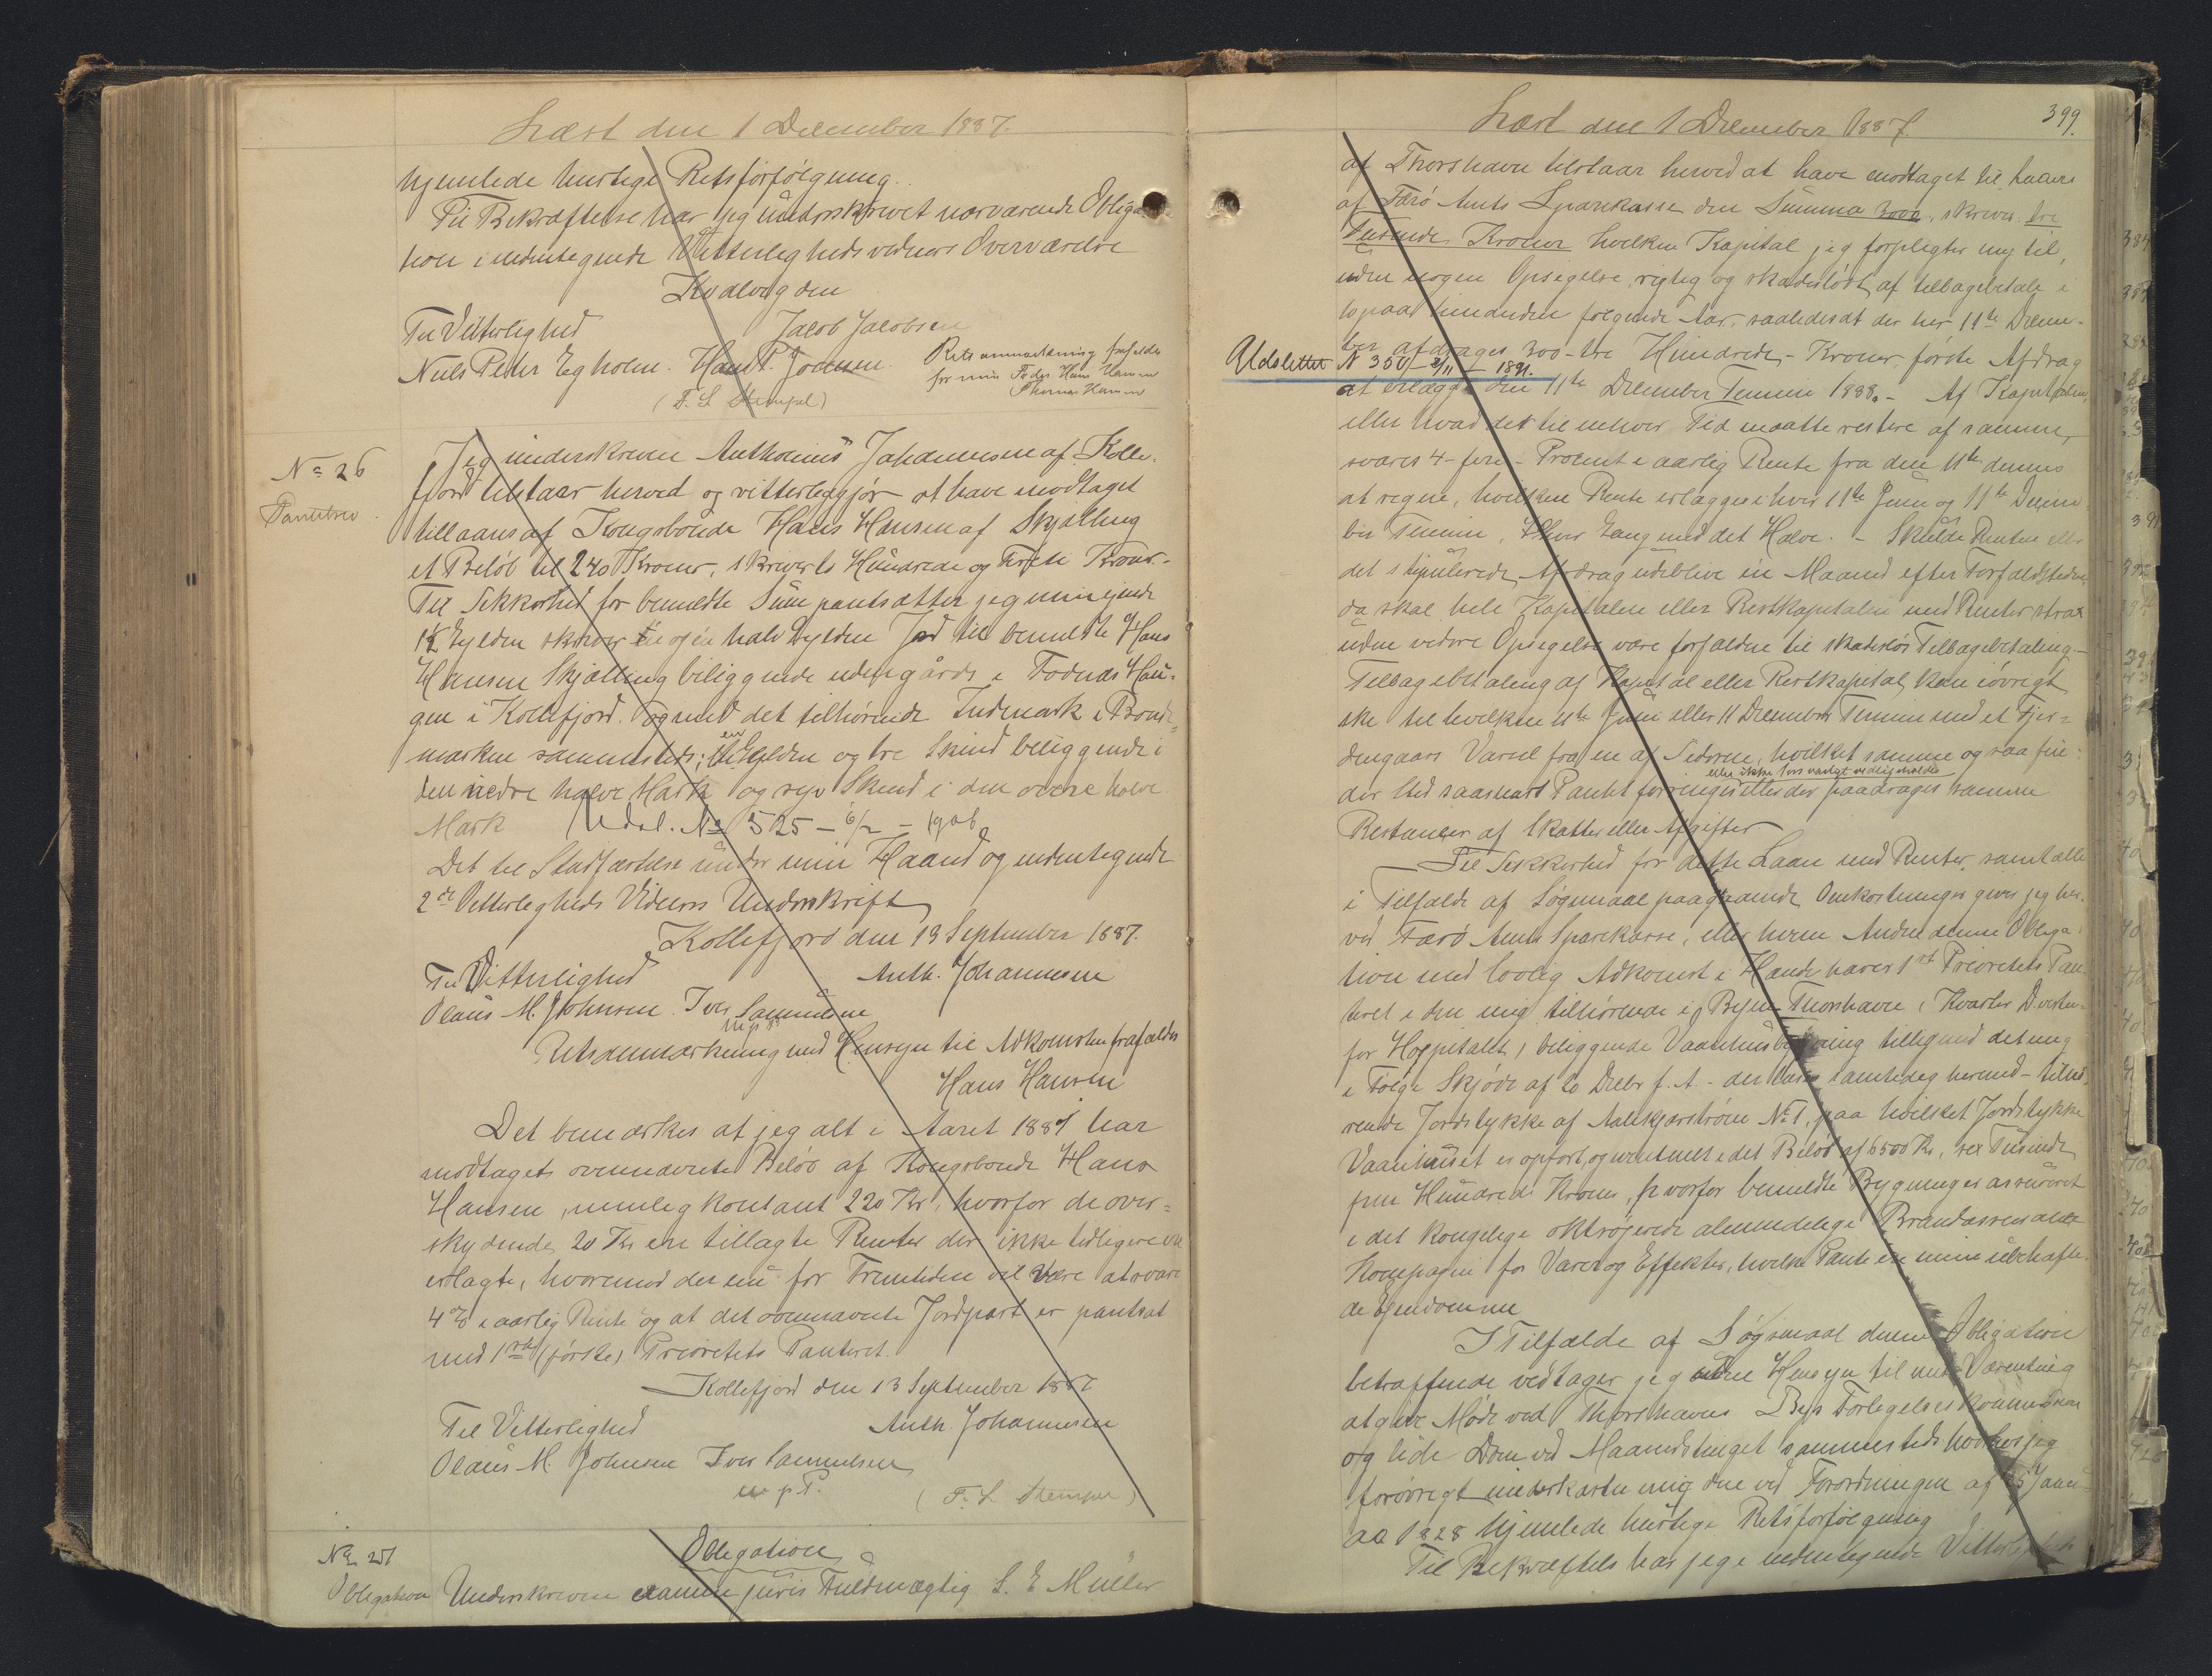 Læst den 1 December 1887.
hjemlede hurtige Retsforfølgning.
Til Bekræftelse har jeg underskrevet nærværende Obliga-
tion i nedentegnede Vitterlighedsvidners Overværelse
Kvalvig den
Til Vitterlighed Jacob Jacobsen
Niels Peter Egholm. Hans P. Joensen. Retsanmærkning frafaldes
for min Fader Hans Hansen
Thomas Hansen
(F. L. Stempel)
No 26
Pantebrev.
Jeg underskrevne Anthonius Johannesen af Kolle-
fjord tilstaar herved og vitterliggjør at have modtaget
tillaans af Kongsbonde Hans Hansen af Skjælling
et Beløb til 240 Kroner, skriver to Hundrede og Firti Kroner.-
Til Sikkerhed for bemeldte Sum pantsætter jeg min ejende
1½ Gylden skriver en og en halv Gylden Jord til bemeldte Hans
Hansen Skjælling beliggende udengårds i Fodnas Hau-
gen i Kollefjord. og med det tilhørende Indmark i Bønde-
marken sammesteds; en Gylden og tre Skind beliggende i
den nedre halve Mark og syv Skind i den øvere halve
Mark Udsl. No 525 - 6/2 - 1906
Det til Stadfæstelse under min Haand og nedentegnede
2de Vitterligheds Vidners Underskrift
Kollefjord den 13 September 1887.
Til Vitterlighed Anth. Johannesen
Olaus M. Johnsen. Iver Samuelsen
m. p. P.
Retsanmærkning med Hensyn til Adkomsten frafaldes
Hans Hansen
Det bemærkes at jeg alt i Aaret 1881 har
modtaget ovennævnte Beløb af Kongsbonde Hans
Hansen, nemlig kontant 220 Kr, hvorfor de over-
skydende 20 Kr ere tillagte Renter der ikke tidligere ere
erlagte, hvorimod der nu for Fremtiden vil være at svare
4 % i aarlig Rente og at det ovennævnte Jordpart er pantsat
med 1ste (første) Prioritets Panteret.
Kollefjord den 13 September 1887
Til Vitterlighed Anth. Johannesen
Olaus M. Johnsen Iver Samuelsen
m. p. P. (F. L. Stempel)
No 27
Obligation
Obligation
Underskrevne examen juris Fuldmægtig S. E. Müller
Læst den 1 December 1887. 399.
af Thorshavn tilstaar herved at have modtaget til Laans
af Færø Amts Sparekasse den Summa 3000, skriver tre
Tusinde Kroner hvilken Kapital jeg forpligter mig til,
uden nogen Opsigelse, rigtig og skadesløst at tilbagebetale i
10 paa hinanden følgende Aar, saaledes at der hver 11te Decem-
ber afdrages 300 - tre Hundrede - Kroner, første Afdrag
Udslettet N 350 - 2/11 - 1891.
at erlægge den 11te December Termin 1888. - Af Kapitalen,
eller hvad det til enhver Tid maatte restere af samme,
svares 4 - fire - Procent i aarlig Rente fra den 11te dennes
at regne, hvilken Rente erlægges i hver 11te Juni og 11te Decem-
ber Termin, hver Gang med det Halve. - Skulde Renten eller
det stipulerede Afdrag udeblive en Maaned efter Forfaldstiden,
da skal hele Kapitalen eller Restkapitalen med Renter strax
uden videre Opsigelse være forfalden til skadesløs Tilbagebetaling.-
Tilbagebetaling af Kapital eller Restkapital kan iøvrigt
ske til hvilken 11te Juni eller 11 December Termin med et Fjer-
dingaars Varsel fra en af Siderne, hvilket samme ogsaa fin-
der Sted saasnart Pantet forringes eller ikke forsvarligt vedligeholdes eller der paadrages samme
Restancer af Skatter eller Afgifter
Til Sikkerhed for dette Laan med Renter, samt alle
i Tilfælde af Søgsmaal paagaaende Omkostninger giver jeg her-
ved Færø Amts Sparekasse, eller hvem Anden denne Obliga-
tion med lovlig Adkomst i Hænde haver 1ste Prioritets Pan-
teret i den mig tilhørende i Byen Thorshavn (Kvarter Vesten-
for Hospitalet) beliggende Vaaningsbygning tilligemed det mig
i Følge Skjøde af 20 Decbr f. A. - der læses samtidig hermed - tilhø-
rende Jordstykke af Aalekjærstrøm No 1, paa hvilket Jordstykke
Vaanhuset er opført, og vurderet i det Beløb af 6500 Kr, sex Tusinde
fem Hundrede Kroner, hvorfor bemeldte Bygning er assureret
i det Kongelige oktrojerede almindelige Brandassurance
Kompagni for Varer og Effekter, hvilke Pante ere mine ubehæfte-
de Ejendomme
I Tilfælde af Søgsmaal denne Obligation
betræffende vedtager jeg uden Hensyn til mit Værneting
at give Møde ved Thorshavns Byes Forligelseskommission
og lide Dom ved Maanedstinget sammesteds hvorhos jeg
forøvrigt underkaster mig den ved Forordningen af 25 Janu-
ar 1828 hjemlede hurtige Retsforfølgning
Til Bekræftelse har jeg i nedentegnede Vitterligheds